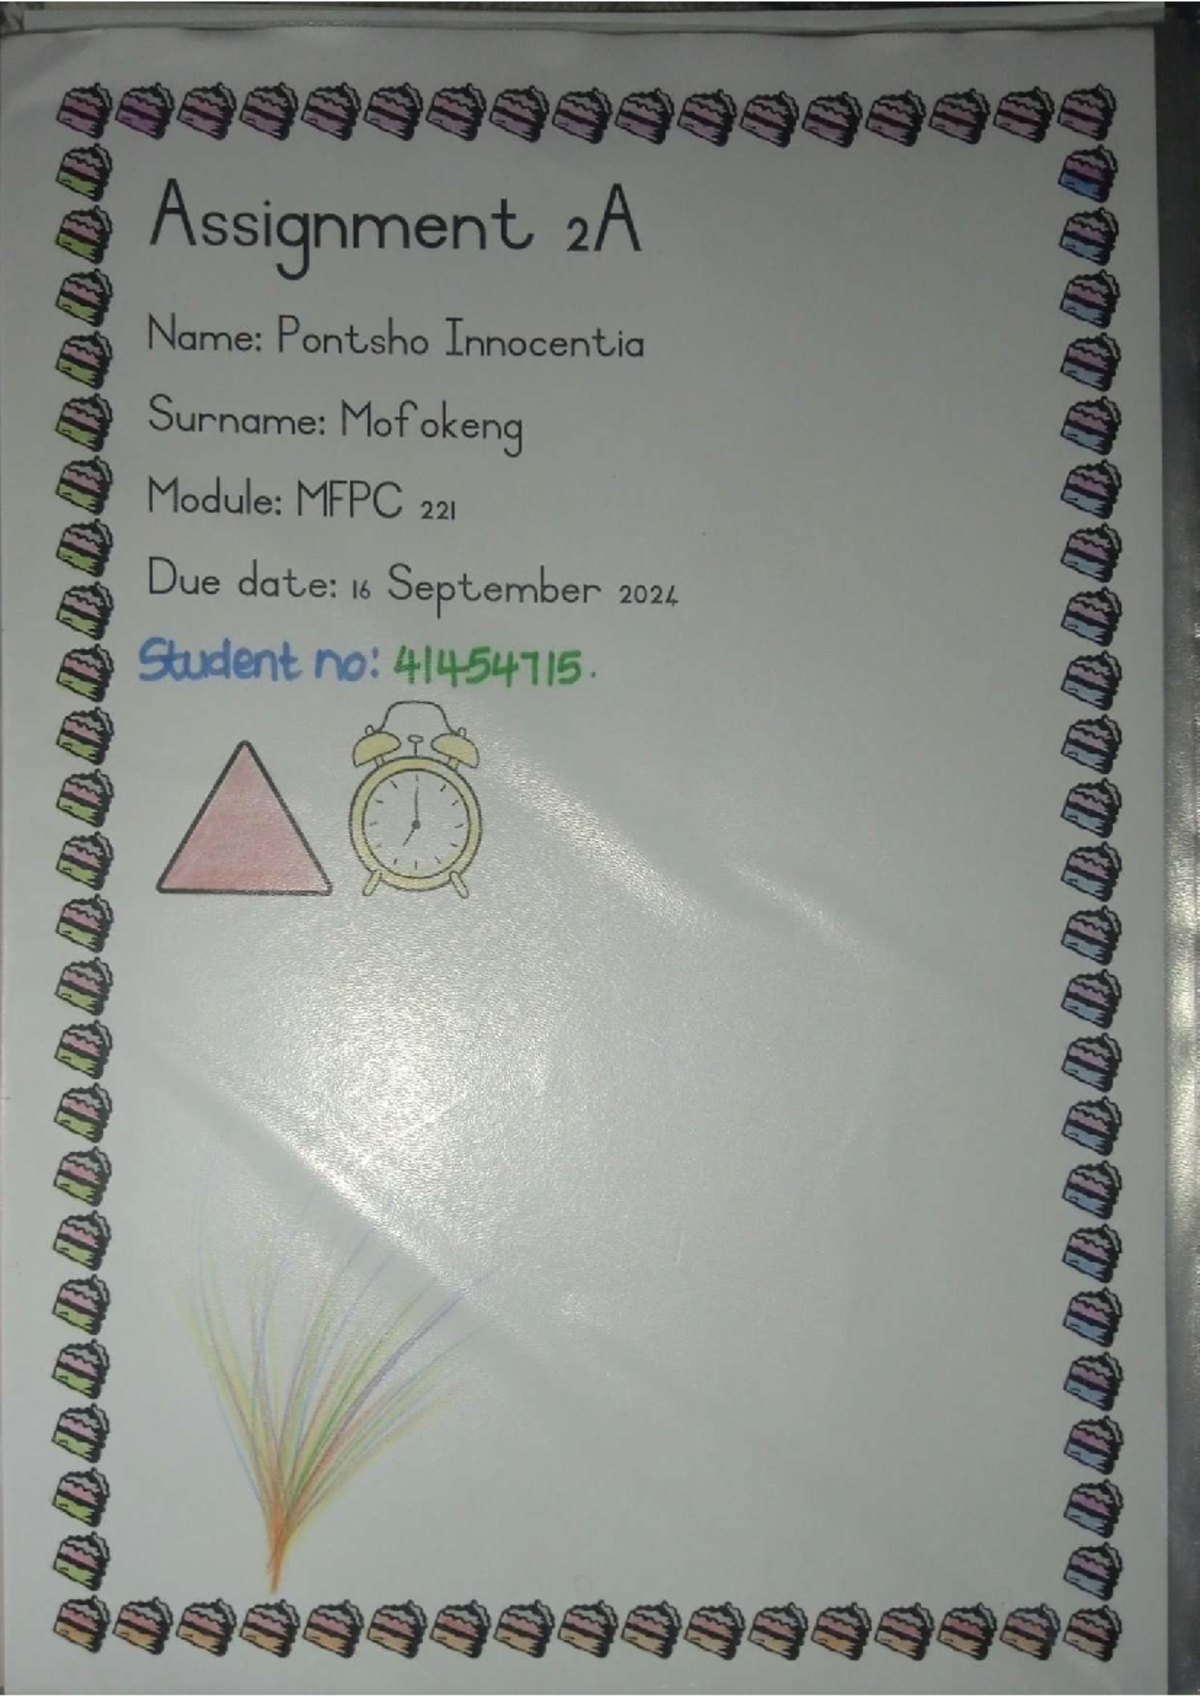 Assignment 2A
Name: Pontsho Innocentia
Surname: Mofokeng
Module: MFPC 221
Due date: 16 September 2024
Student no: 41454715.